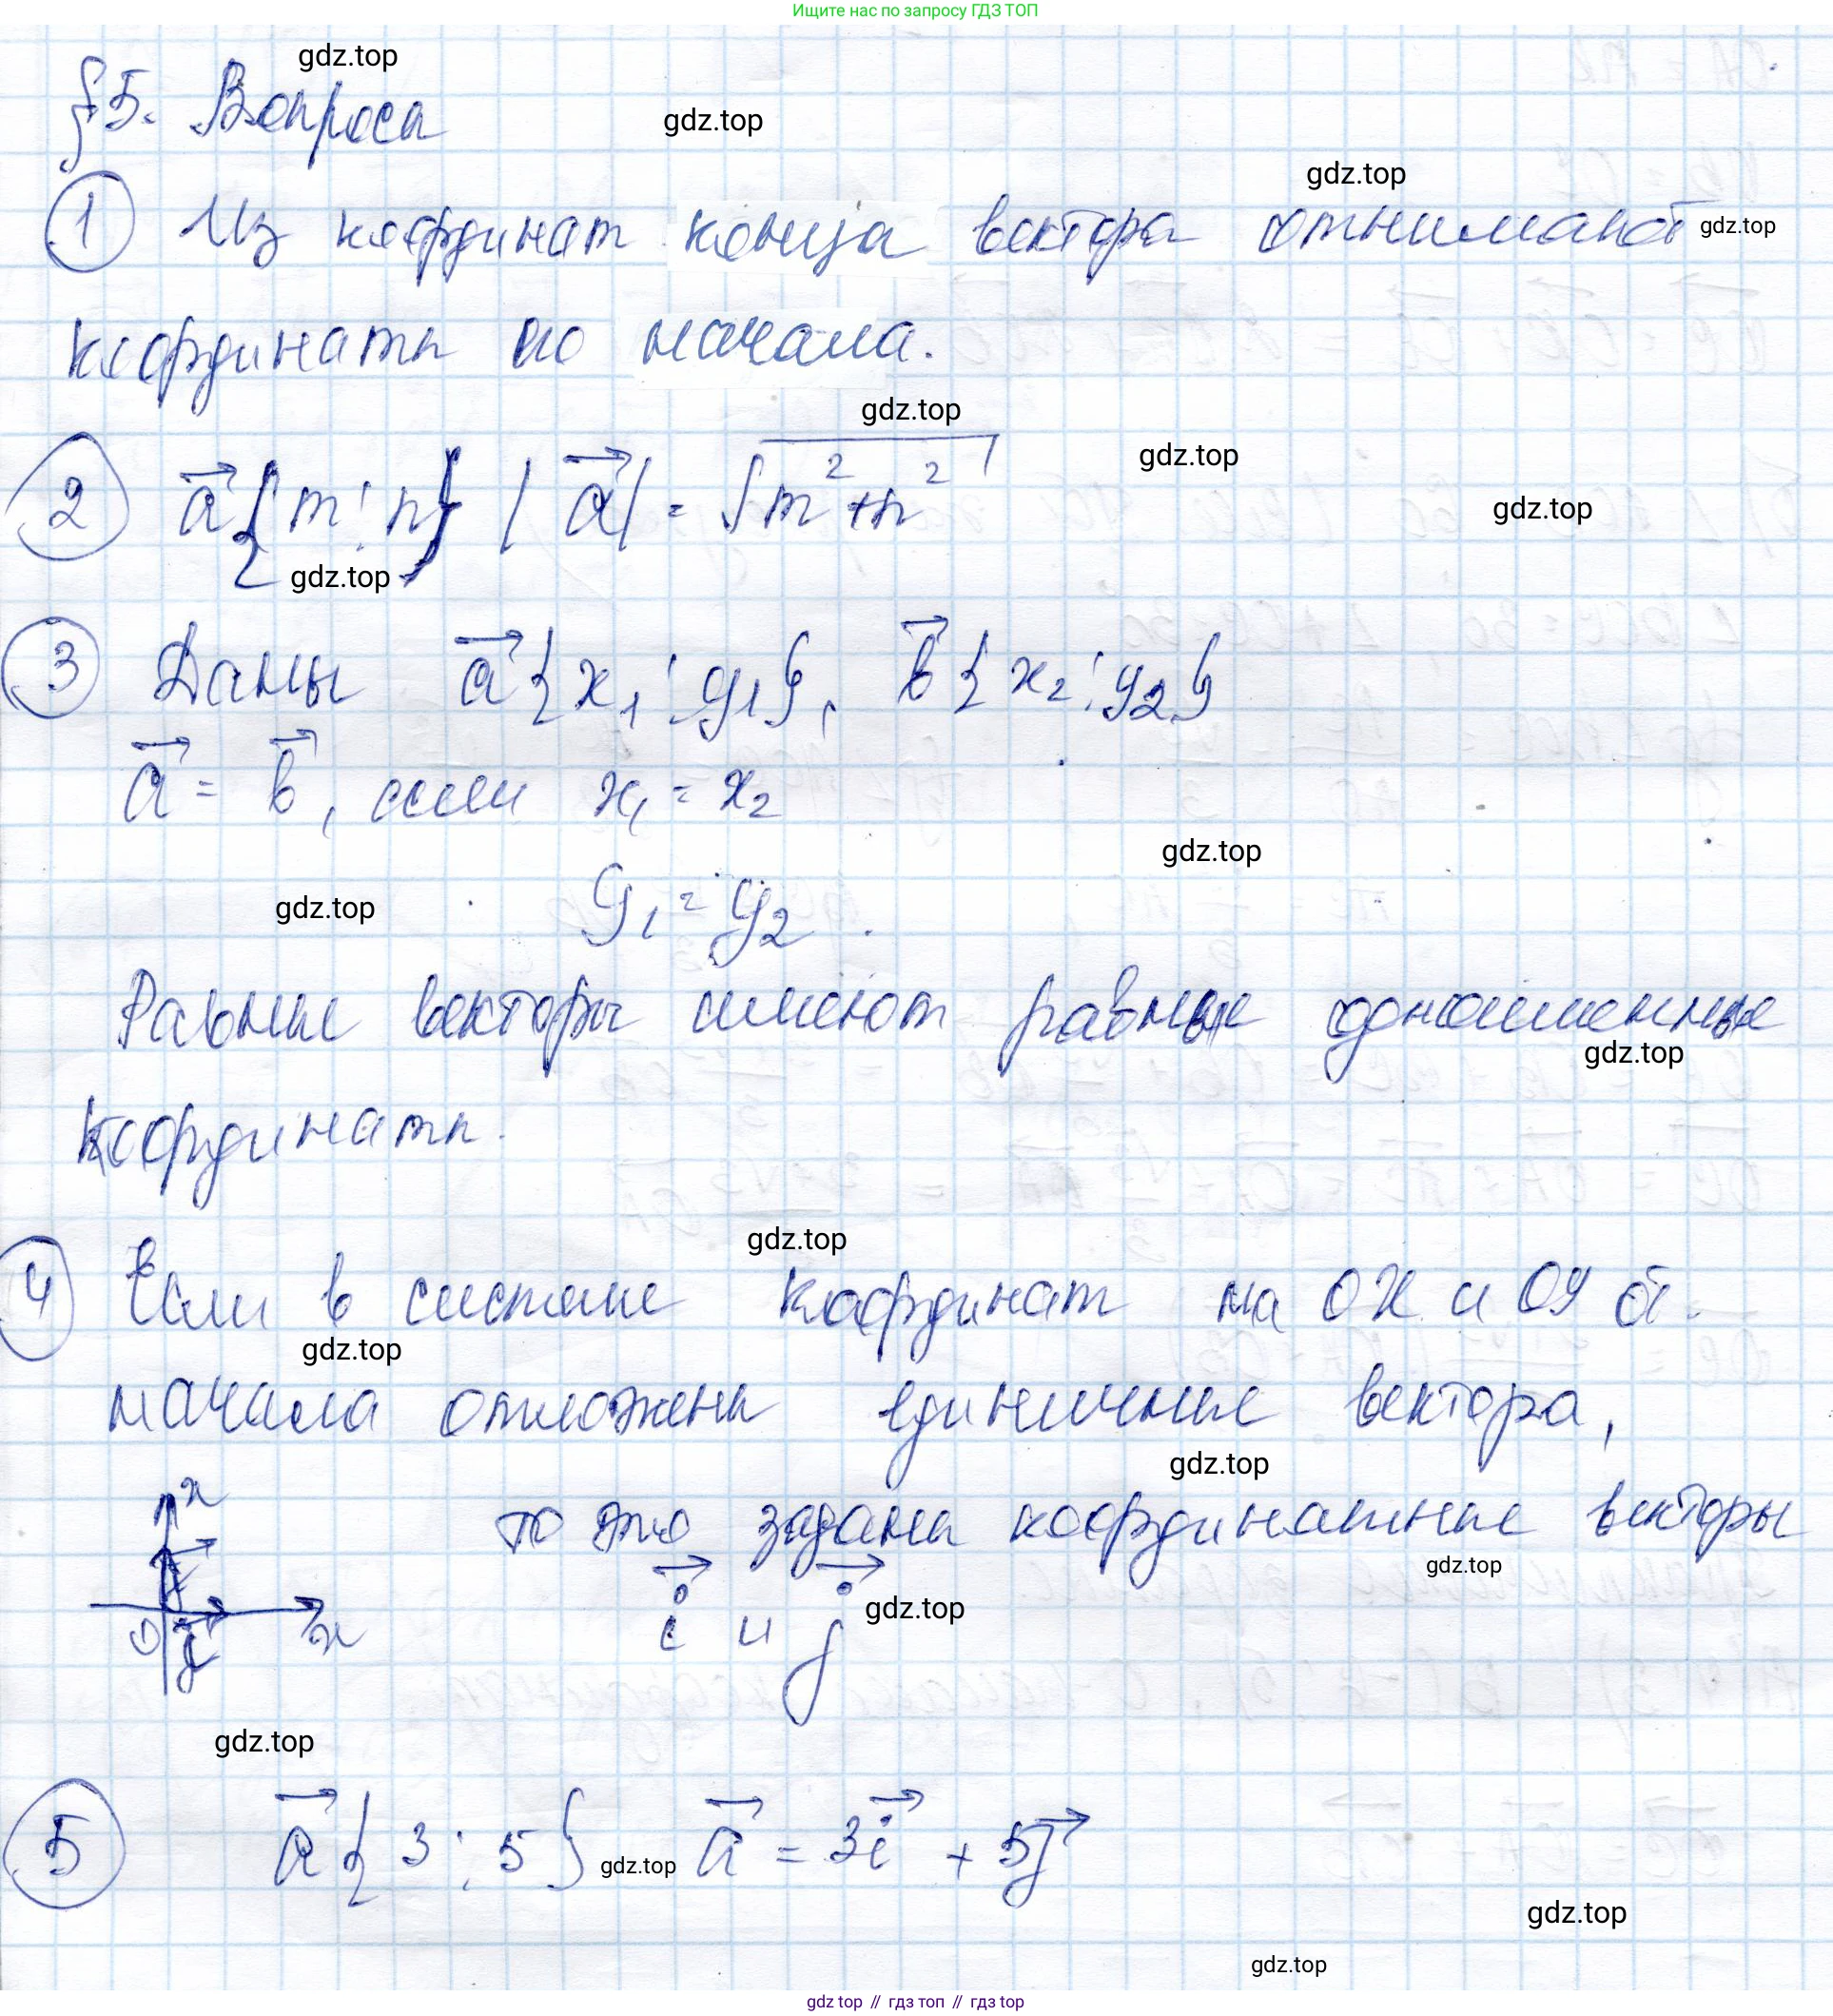 Ищите нас по запросу ГДЗ ТОП
gdz.top
§5. Вопроса
gdz.top
gdz.top
1 Из координат конца вектора отнимают gdz.top
координаты его начала.
gdz.top
2 a⃗{m; n} |a⃗| = √m²+n²
gdz.top
gdz.top
gdz.top
3 Даны a⃗{x₁; y₁}, b⃗{x₂; y₂}
a⃗ = b⃗, если x₁ = x₂
gdz.top
gdz.top
y₁ = y₂.
Равные векторы имеют равные одноименные
gdz.top
координаты.
gdz.top
4 Если в системе координат на OX и OY от
gdz.top
начала отложены единичные вектора,
gdz.top
x то это заданы координатные векторы
gdz.top
i⃗ и j⃗ gdz.top
0 x
gdz.top
5 a⃗{3; 5} gdz.top a⃗ = 3i⃗ + 5j⃗
gdz.top
gdz.top
gdz.top // гдз топ // gdz.top